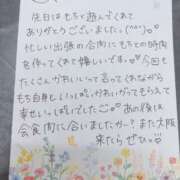 先日はもちと遊んでくれて
ありがとうございました。(^^)♡
忙しい出張の合間にもちとの時間
を作ってくれて嬉しいです。今回も
たくさんかわいいって言ってくれながら
もち自身もいっぱいかわいがってもらえて
幸せいっぱいでした♡あの後は
会食間に合いましたかー？また大阪
来たらぜひ♡